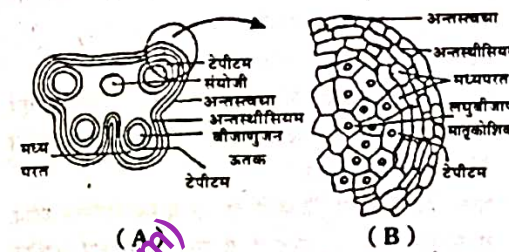 टेपीटम
संयोजी
अन्तस्त्वचा
अन्तस्थीसियम
बीजाणुजन
ऊतक
मध्य
परत
टेपीटम
(A)
अन्तस्त्वचा
अन्तस्थीसियम
मध्यपरत
लघुबीजाणु
मातृकोशिका
टेपीटम
(B)